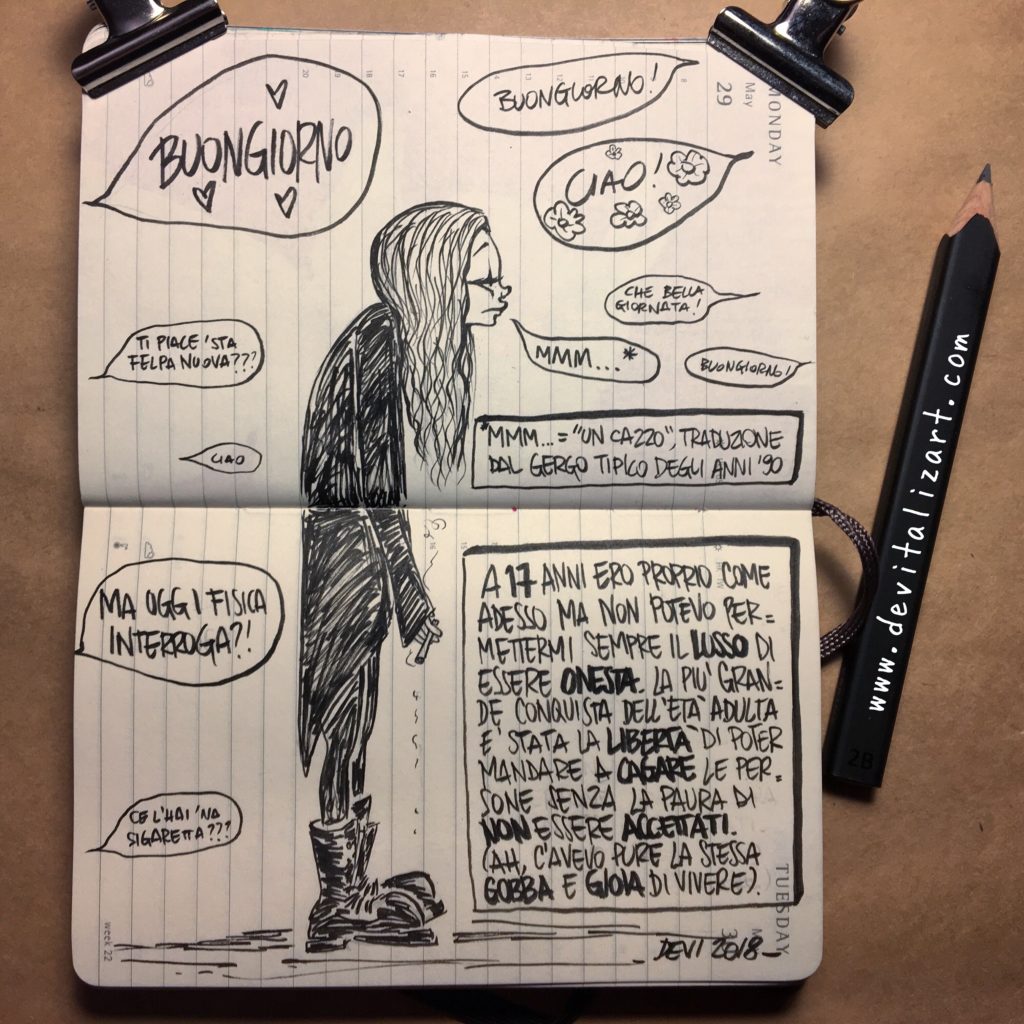 BUONGIORNO
BUONGIORNO!
CIAO!
MONDAY
May
29
CHE BELLA
GIORNATA!
TI PIACE 'STA
FELPA NUOVA???
MMM... *
BUONGIORNO!
CIAO
*MMM... = "UN CAZZO", TRADUZIONE
DAL GERGO TIPICO DEGLI ANNI '90
MA OGGI FISICA
INTERROGA?!
A 17 ANNI ERO PROPRIO COME
ADESSO MA NON POTEVO PER=
METTERMI SEMPRE IL LUSSO DI
ESSERE ONESTA. LA PIU' GRAN=
DE CONQUISTA DELL'ETÀ ADULTA
E' STATA LA LIBERTA' DI POTER
MANDARE A CAGARE LE PER=
SONE SENZA LA PAURA DI
NON ESSERE ACCETTATI.
(AH, C'AVEVO PURE LA STESSA
GOBBA E GIOIA DI VIVERE).
CE L'HAI 'NA
SIGARETTA???
TUESDAY
week 22
DEVI 2018
www.devitalizart.com
2B